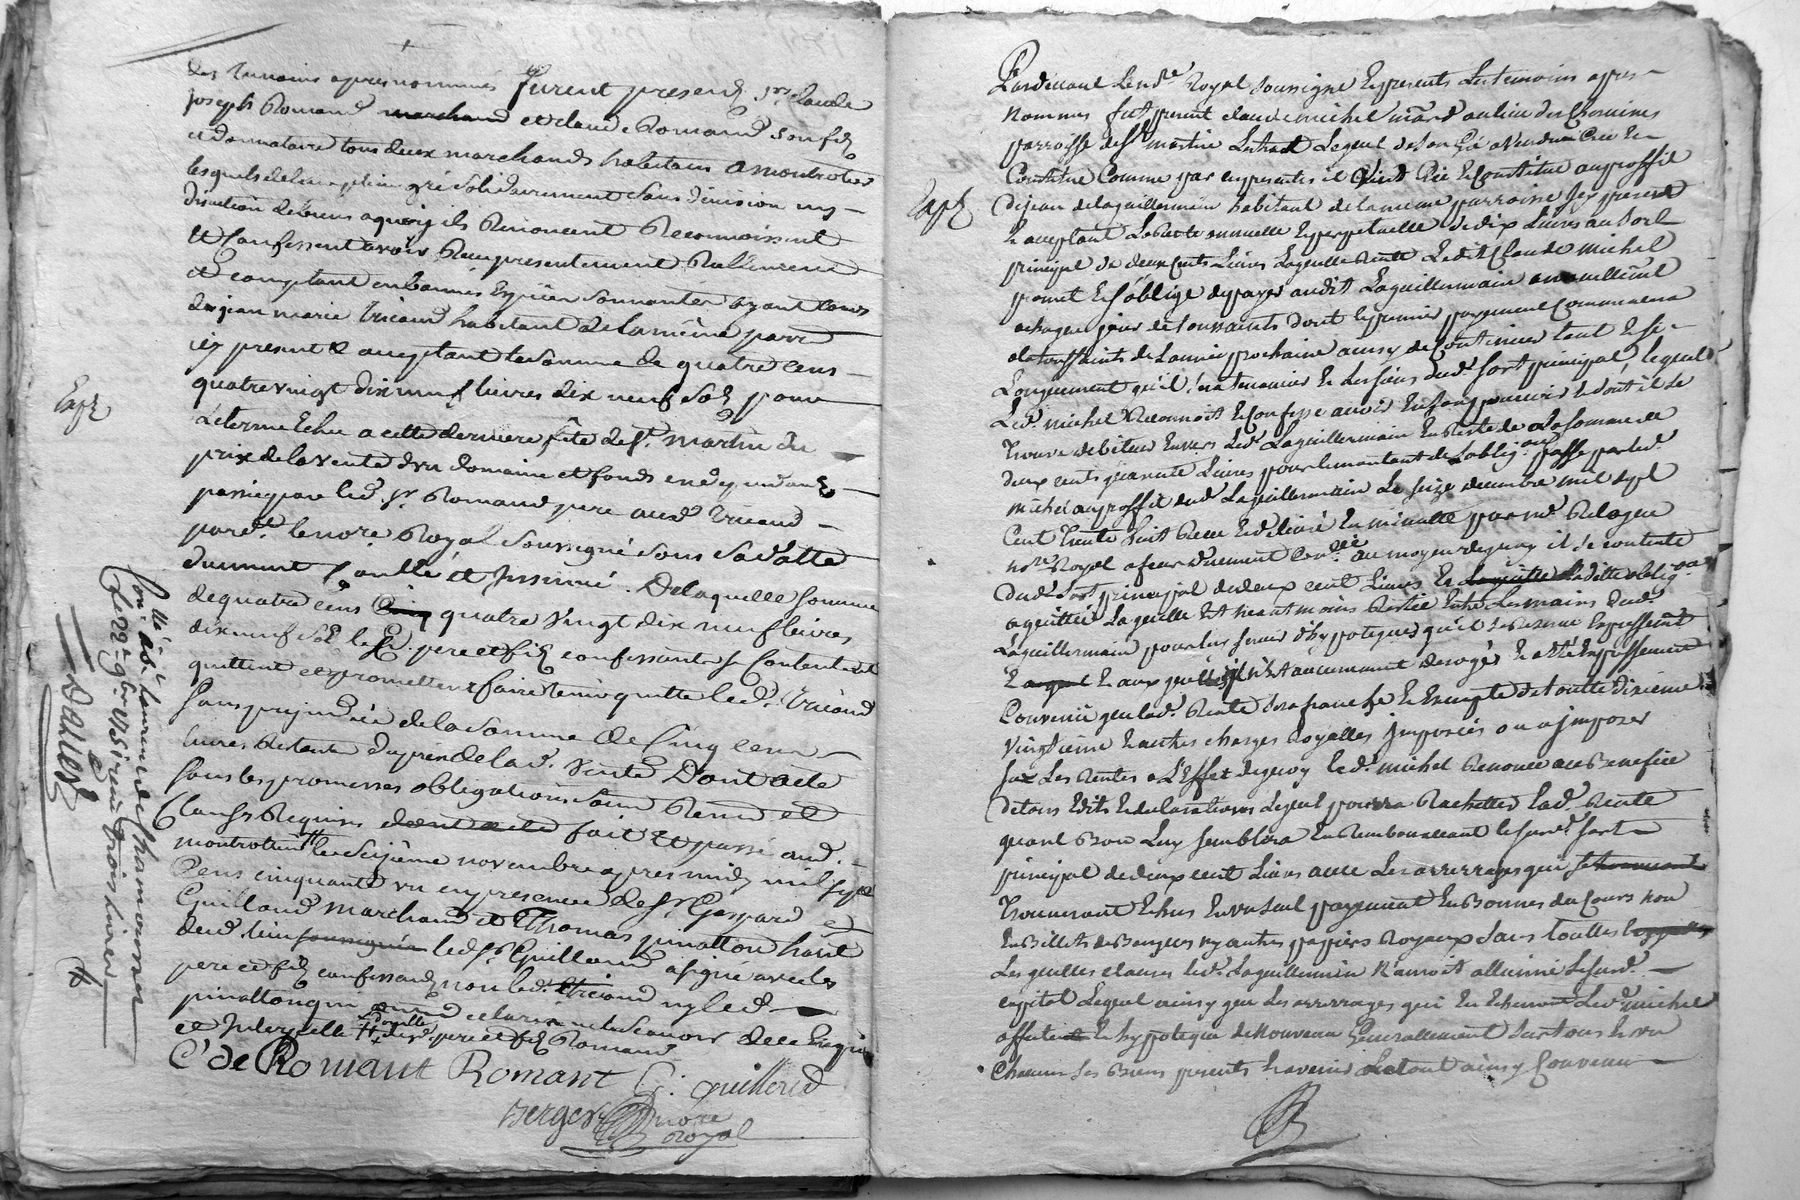 des temoins apres nommés furent presens Srs claude
joseph Romand marchand et claude Romand son fils
et donnataire tous deux marchands habitans a montrotier
lesquels de leur plein gré solidairement sans division ny
discution de biens a quoy ils Renoncent Reconnoissent
et Confessent avoir Reçu presentement Reellement
et comptant en bonnes Espèces sonnantes ayant cours
de jean marie tricaud habitant de la même parr.
icy present & acceptant la somme de quatre cens
quatre vingt dix neuf livres dix neuf sols pour
Le terme Echu a cette derniere fête de St. Martin du
prix de la vente d'un domaine et fonds en dependants
passée par led. Sr. Romand pere aud. tricaud
pard. le nore Royal soussigné sous sa datte
duement Controllé et Insinué. De laquelle somme
de quatre cens quatre vingt dix neuf livres
dix neuf sols lesd. pere et fils confessants se Contentent
quittent et promettent faire tenir quitte led. tricaud
sans prejudice de la somme de Cinq cens
livres Restante du prix de lad. vente Dont acte
sous les promesses obligations soum. Renon. et
Clauses Requises dont acte fait et passé aud.
montrottier le seizième novembre apres midy mil sept
Cens cinquante un en presence de Sr. Gaspard
Guilloud marchand et Thomas pinatton habit.
dud. lieu soussignés led. Sr. Guilloud a signé avec les
pere et fils confessants non led. tricaud ny led.
pinatton qui ont declaré ne le scavoir de ce Enquis
et Interpellé lesd. pere et fils Romand
C' de Romant Romant G: Guilloud
Berger nore
Royal
Expé
Con.llé à St. laurent de Chamousset
Le 22e 9bre 1751 reçu trois livres
Dalier
Pardevant le no.re Royal soussigné En presents Les temoins apres
Nommés fut present claude michel mar.d au lieu des Chemines
parroisse de St martin Lestrat Lequel de son gré a Vendu Créé Et
Constitué Comme par ces presentes il Vend Crée Et Constitue au proffit
de jean de laguillermin habitant de la meme parroisse icy present
Et acceptant La Rente annuelle Et perpetuelle de dix Livres au sort
principal de deux cents Livres Laquelle Rente Ledit Claude michel
promet Et s'oblige de payer audit Laguillermain annuellement
a chaque jour de toussaints dont le premier payement Commencera
a la toussaints de L'année prochaine ainsy de Continuer tant Et si
Longuement qu'il sera tenancier Et des siens dud. sort principal, lequel
Led. michel Reconnoit Et Confesse avoir En son pouvoir Et dont il se
trouve debiteur Envers Led. Laguillermain En Reste de La somme de
deux cents quarante Livres pour le montant de L'oblig.on passé par led.
michel au proffit dud. Laguillermain Le seize decembre mil sept
Cent trente huit Reçue Et delivré En minutte par Me Delagea
no.re Royal a feurs Duement Con.llé au moyen de quoy il se contente
dud. sort principal de deux cent Livres Et Laquitte Laditte oblig.on
a quitté Laquelle Est Neantmoins Restée Entre Les mains dud.
Laguillermain pour luy servir d'hypoteques qu'il se Reserve Expressement
Et auxquelles il n'est aucunement derogés Et a été Expressement
Convenu que lad. Rente sera franche Et Exempte de toutte dixieme
Vingtieme Et autres charges Royalles imposées ou a imposer
sur Les Rentes a L'Effet de quoy led. michel Renonce au Benefice
de tous Edits Et declarations Lequel pourra Rachetter lad. Rente
quand Bon Luy semblera En Remboursant le susd. sort
principal de deux cent Livres avec Les arrerrages qui se trouveront
trouveront Echus En un seul payement En Bonnes du Cours non
En Billets de Banques ny autres papiers Royaux sans touttes lesquelles
Les quelles clauses led. Laguillermin N'auroit allienné Le susd.
capital Lequel ainsy que Les arrerrages qui En Echeront Led. michel
affecte Et hypoteque de Nouveau Generallement sur tous Et un
Chacun ses Biens presents Et avenir Le tout ainsy Convenu
Expé